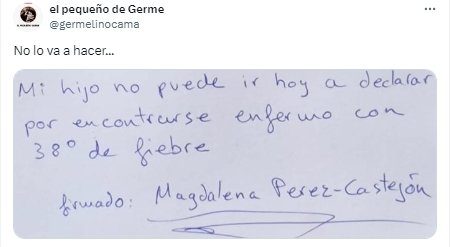 el pequeño de Germe
@germelinocama
No lo va a hacer...
Mi hijo no puede ir hoy a declarar
por encontrarse enfermo con
38º de fiebre
firmado: Magdalena Perez-Castejón